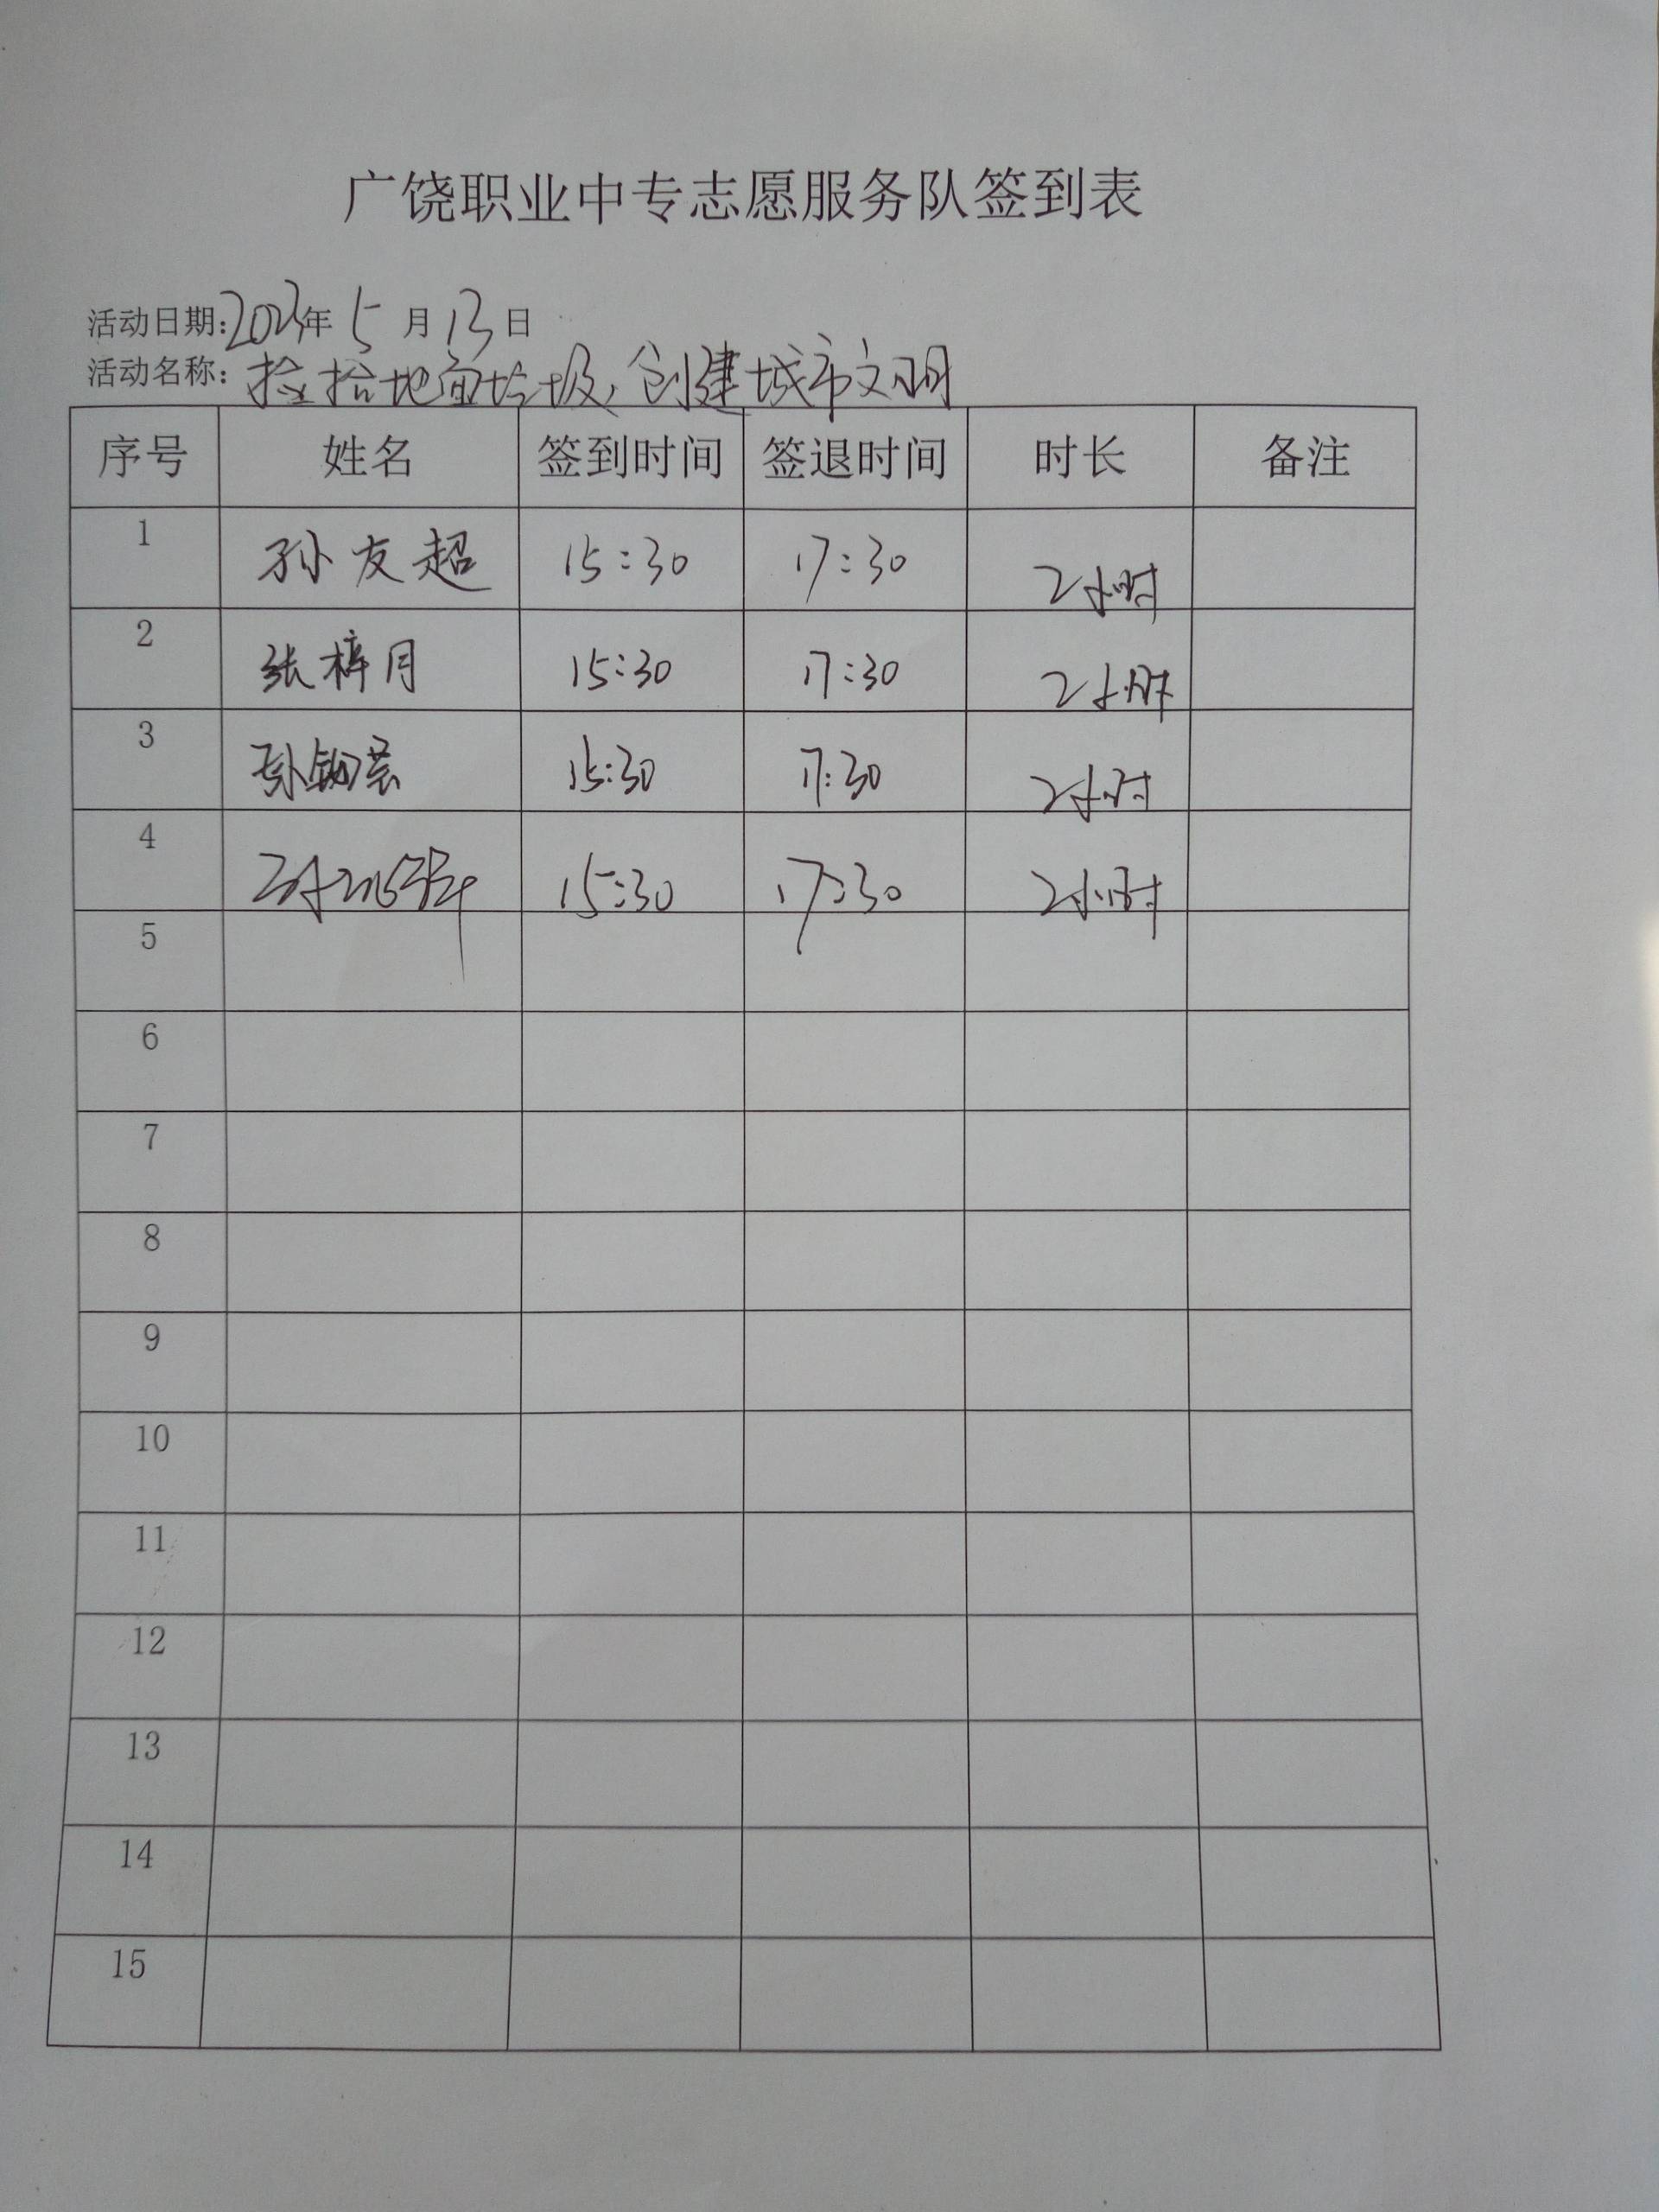 广饶职业中专志愿服务队签到表
活动日期:2023年 5 月 13 日
活动名称: 捡拾地面垃圾,创建城市文明
序号 姓名 签到时间 签退时间 时长 备注
1 孙友超 15:30 17:30 2小时
2 张梓月 15:30 17:30 2小时
3 孙 15:30 17:30 2小时
4 15:30 17:30 2小时
5
6
7
8
9
10
11
12
13
14
15